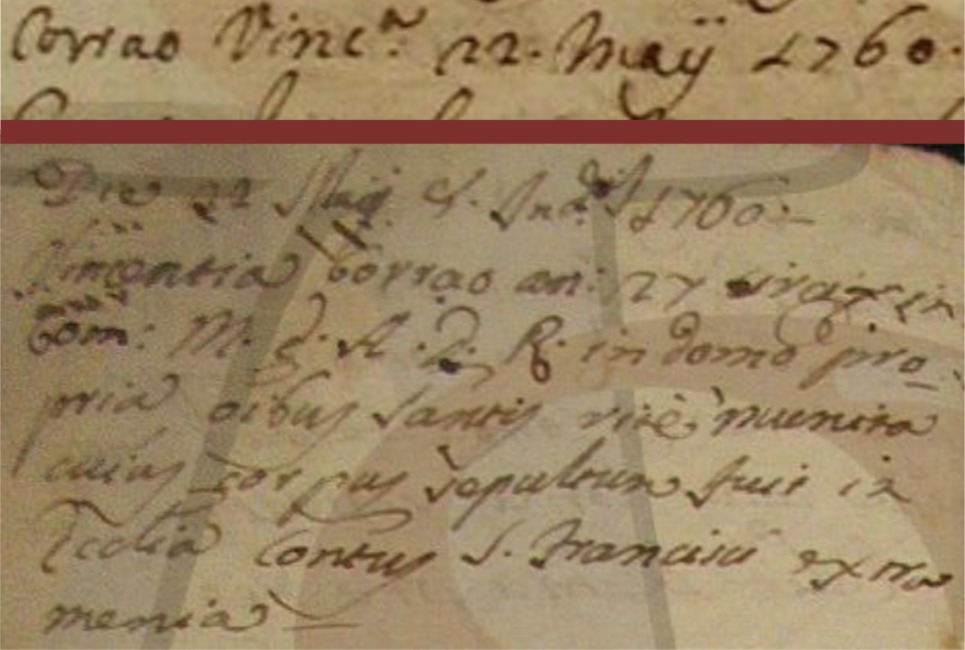 Corrao Vinc.ª 22. Maÿ 1760.
Die 22 Maij 8. Ind.s 1760:
Vincentia Corrao an: 27 virgo in
Com: M. S. A. D. R. in domo pro
pria oibus Santis ritè muenita
cuius corpus sepultum fuit in
Ecclia Contus S. Francisci extra
menia